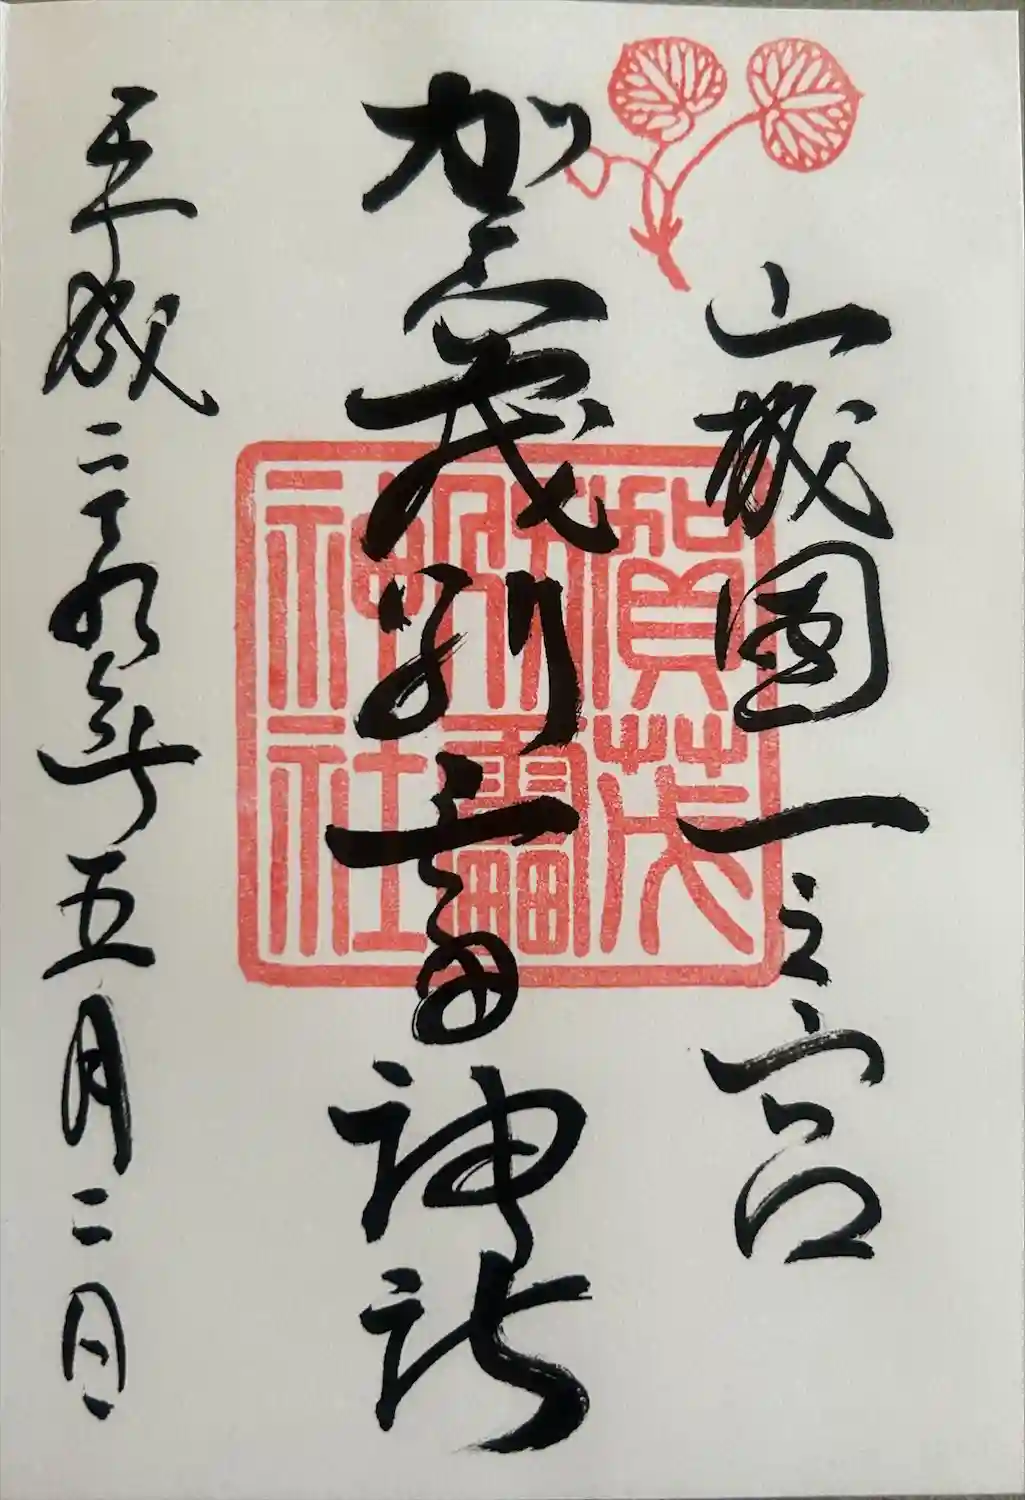 山城國一之宮
賀茂別雷神社
平成二十九年五月二日
賀茂
別雷
神社